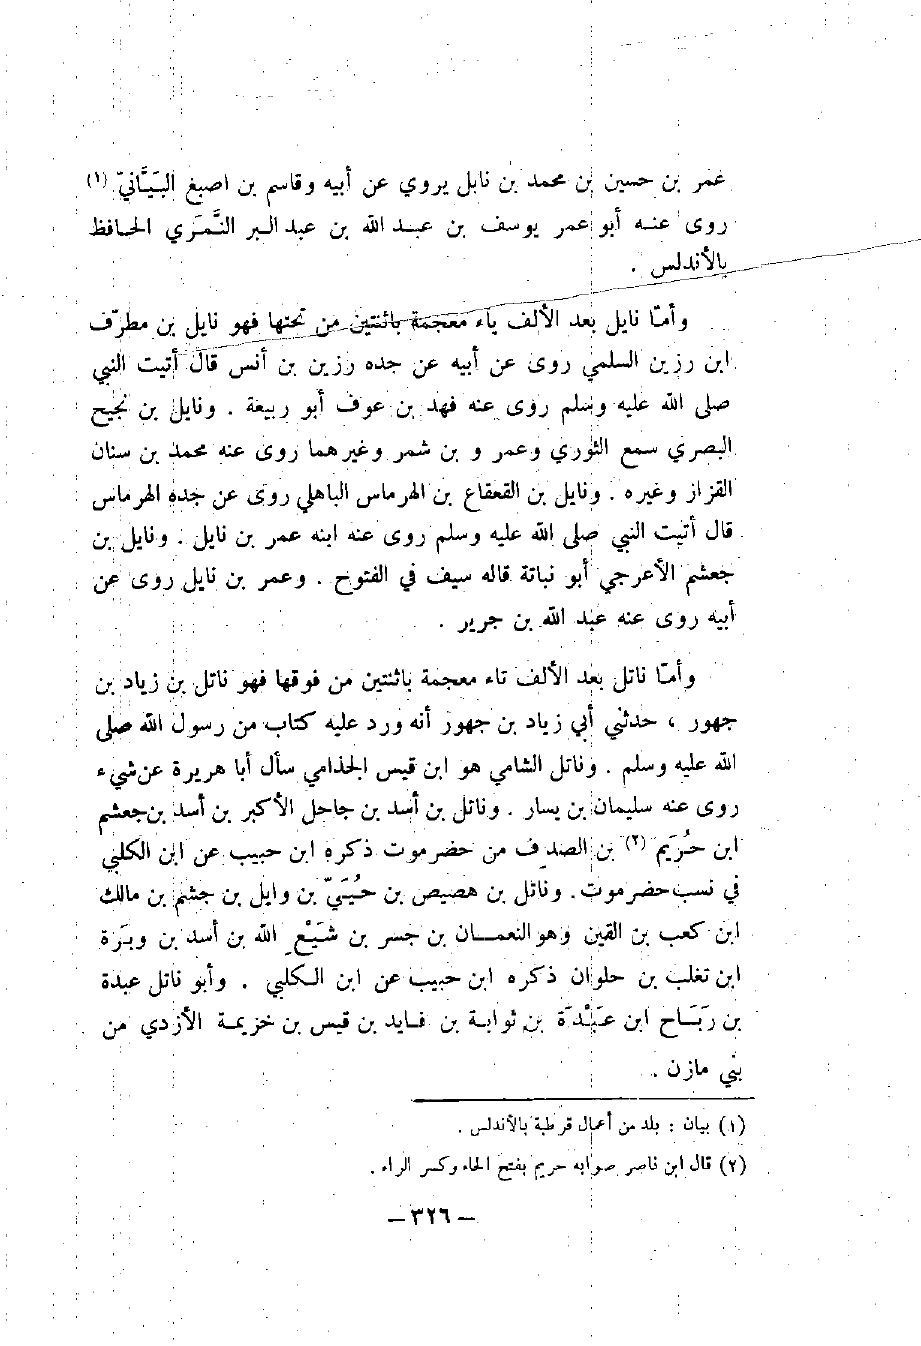 عمر بن حسين بن محمد بن نابل يروي عن أبيه وقاسم بن اصبغ البَيَّانيّ (١)
روى عنه أبو عمر يوسف بن عبد الله بن عبد البر النَّمَري الحافظ
بالأندلس .
وأمّا نايل بعد الألف ياء معجمة باثنتين من تحتها فهو نايل بن مطرّف
ابن رزين السلمي روى عن أبيه عن جده رزين بن أنس قال أتيت النبي
صلى الله عليه وسلم روى عنه فهد بن عوف أبو ربيعة . ونايل بن نجيح
البصري سمع الثوري وعمر و بن شمر وغيرهما روى عنه محمد بن سنان
القزاز وغيره . ونايل بن القعقاع بن الهرماس الباهلي روى عن جده الهرماس
قال أتيت النبي صلى الله عليه وسلم روى عنه ابنه عمر بن نايل . ونايل بن
جعشم الأعرجي أبو نباتة قاله سيف في الفتوح . وعمر بن نايل روى عن
أبيه روى عنه عبد الله بن جرير .
وأمّا ناتل بعد الألف تاء معجمة باثنتين من فوقها فهو ناتل بن زياد بن
جهور ، حدثني أبي زياد بن جهور أنه ورد عليه كتاب من رسول الله صلى
الله عليه وسلم . وناتل الشامي هو ابن قيس الجذامي سأل أبا هريرة عن شيء
روى عنه سليمان بن يسار . وناتل بن أسد بن جاحل الأكبر بن أسد بن جعشم
ابن حُرَيم (٢) بن الصدف من حضرموت ذكره ابن حبيب عن ابن الكلبي
في نسب حضرموت . وناتل بن هصيص بن حُيَيّ بن وايل بن جشم بن مالك
ابن كعب بن القين وهو النعمان بن جسر بن شَيْع الله بن أسد بن وبَرة
ابن تغلب بن حلوان ذكره ابن حبيب عن ابن الكلبي . وأبو ناتل عبدة
بن رَبَاح ابن عَبْدَة بن ثوابة بن فايد بن قيس بن خزيمة الأزدي من
بني مازن .
(١) بيان : بلد من أعمال قرطبة بالأندلس .
(٢) قال ابن ناصر صوابه حريم بفتح الحاء وكسر الراء .
– ٣٢٦ –